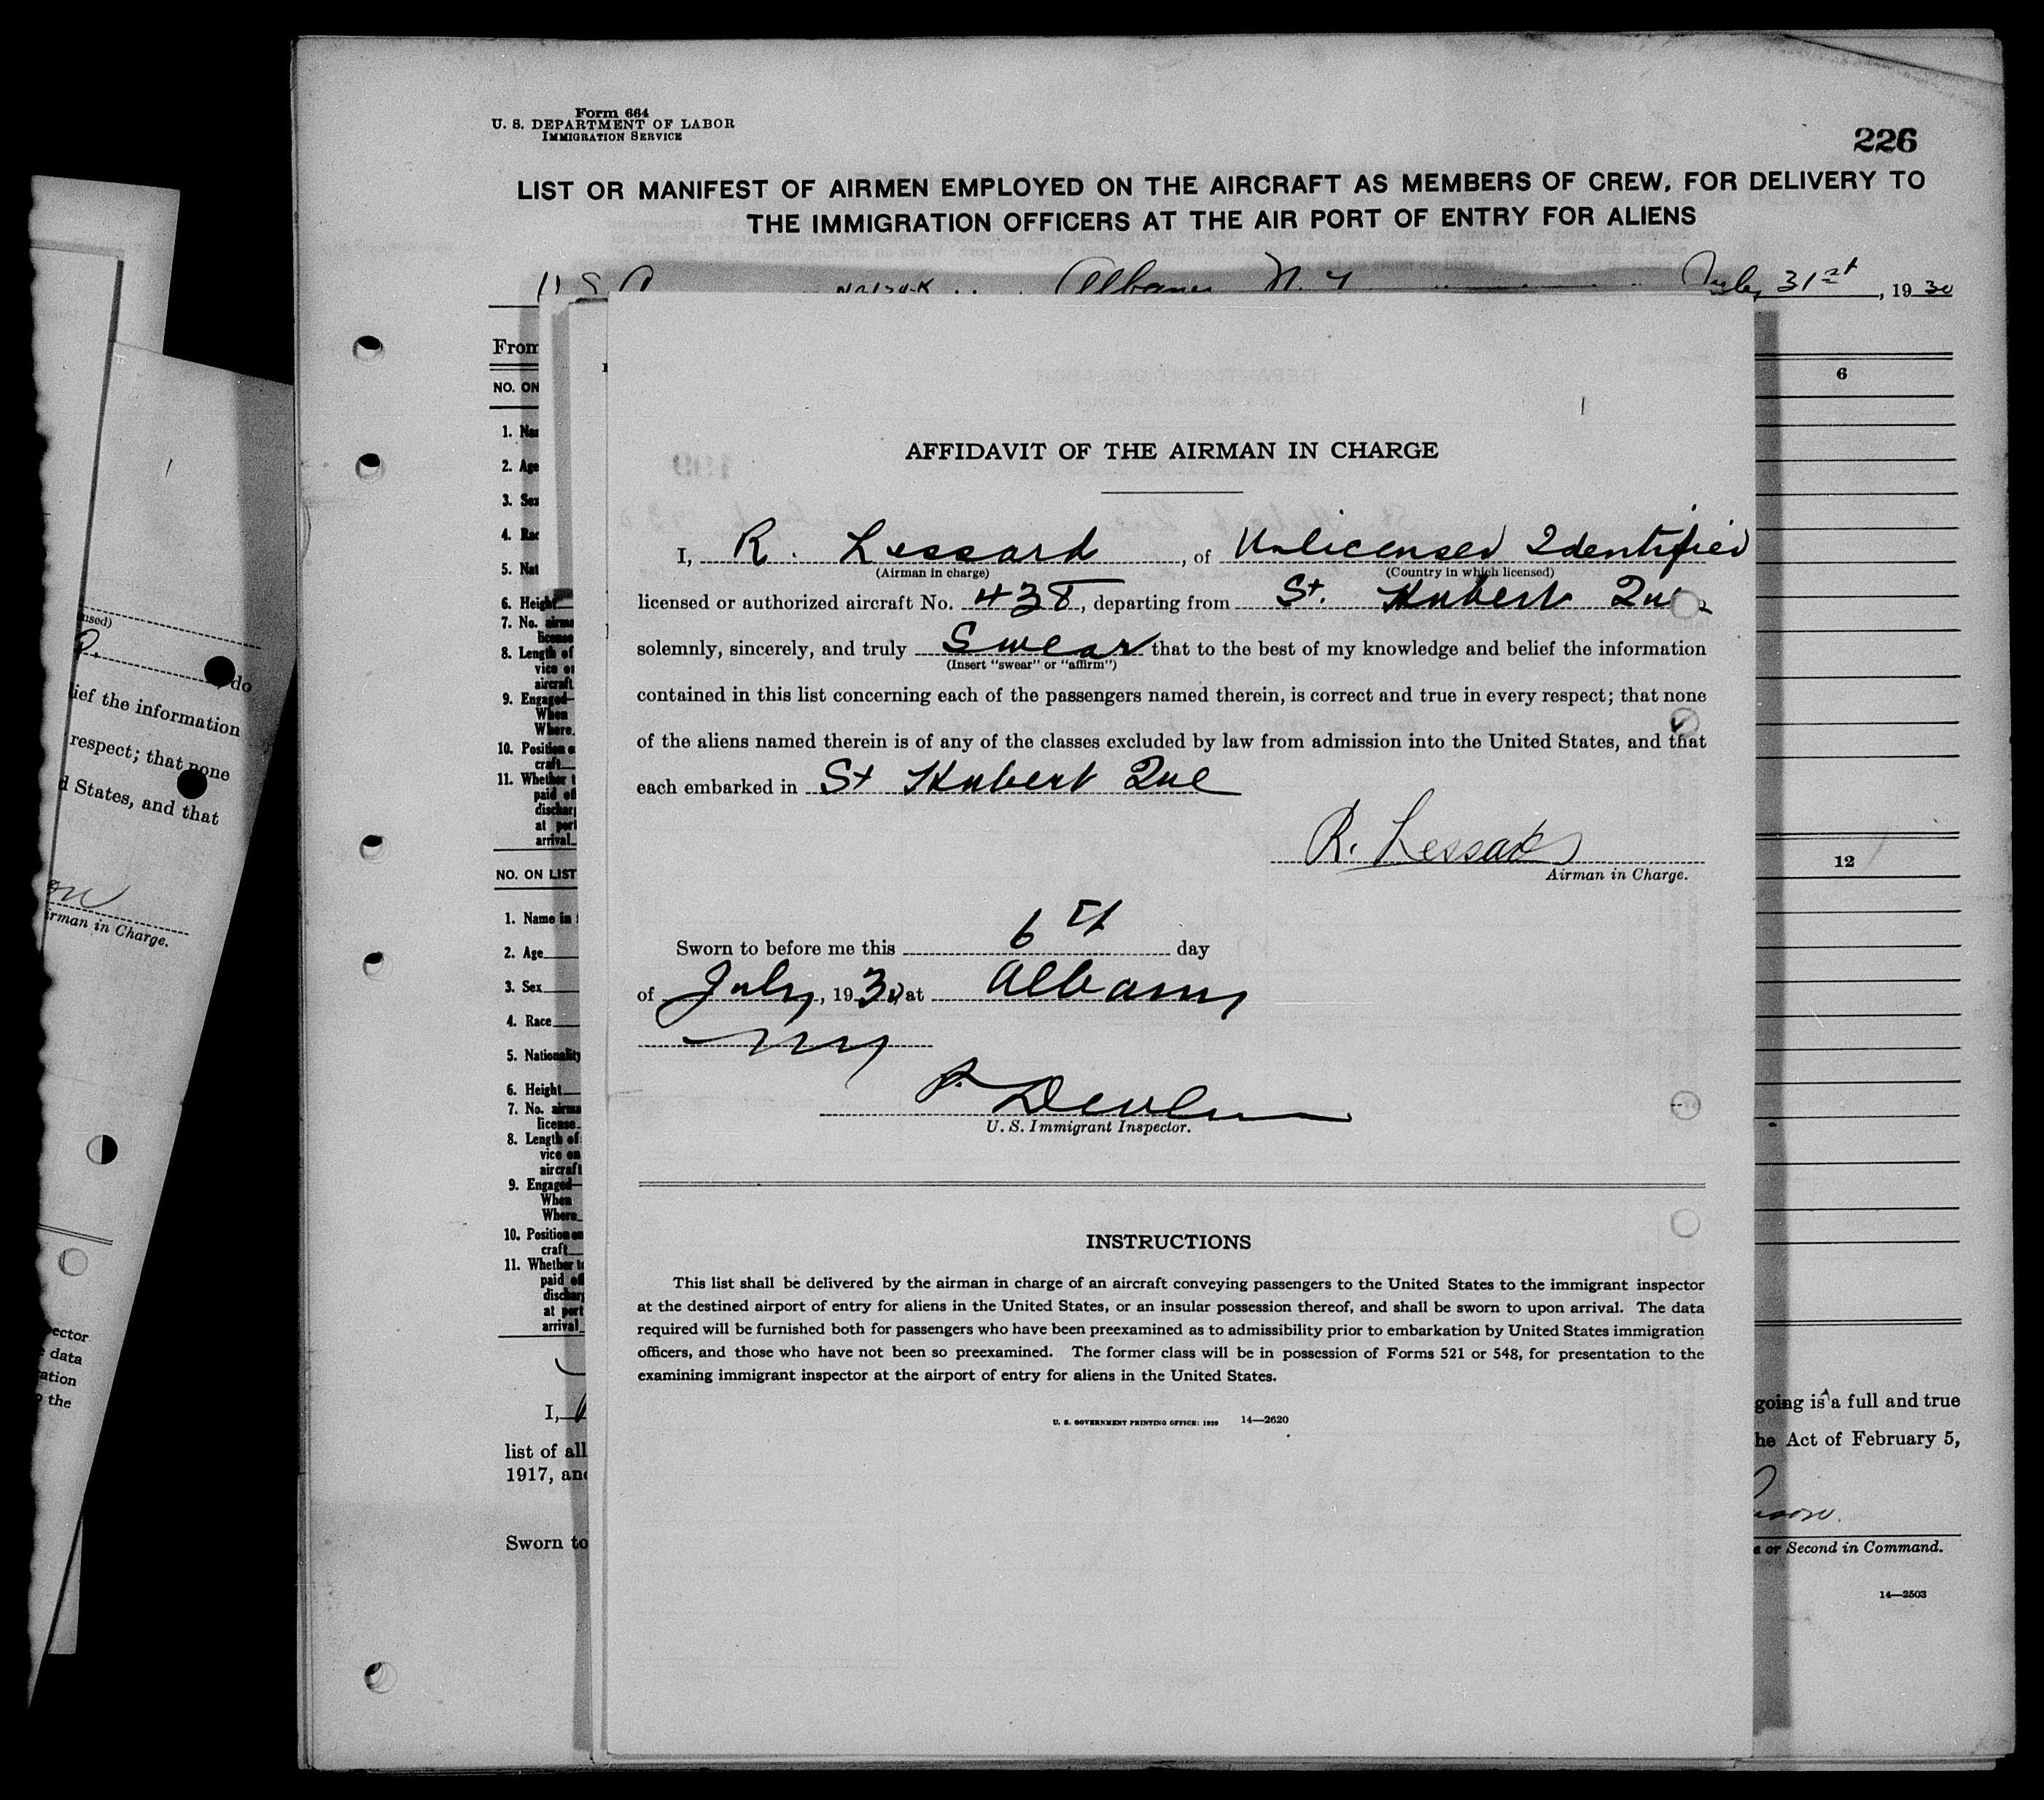 Form 664
U. S. DEPARTMENT OF LABOR
IMMIGRATION SERVICE
226
LIST OR MANIFEST OF AIRMEN EMPLOYED ON THE AIRCRAFT AS MEMBERS OF CREW, FOR DELIVERY TO
THE IMMIGRATION OFFICERS AT THE AIR PORT OF ENTRY FOR ALIENS
Albany N.Y July 31st, 1930
From
NO. ON
6
1. Na
2. Age
3. Sex
4. Rac
5. Nat
6. Height
7. No. airma
license
8. Length of
vice on
aircraft
9. Engaged—
When
Where
10. Position o
craft
11. Whether t
paid of
dischar
at port
arrival
NO. ON LIST
12
1. Name in
2. Age
3. Sex
4. Race
5. Nationality
6. Height
7. No. airma
license
8. Length of
vice on
aircraft
9. Engaged—
When
Where
10. Position on
craft
11. Whether to
paid of
discharg
at port
arrival
I,
going is a full and true
list of all
he Act of February 5,
1917, and
Sworn to
e or Second in Command.
14—2503
AFFIDAVIT OF THE AIRMAN IN CHARGE
I, R. Lessard, of Unlicensed Identified
(Airman in charge) (Country in which licensed)
licensed or authorized aircraft No. 438, departing from St. Hubert Que
solemnly, sincerely, and truly Swear that to the best of my knowledge and belief the information
(Insert "swear" or "affirm")
contained in this list concerning each of the passengers named therein, is correct and true in every respect; that none
of the aliens named therein is of any of the classes excluded by law from admission into the United States, and that
each embarked in St Hubert Que
R. Lessard
Airman in Charge.
Sworn to before me this 6th day
of July, 1930 at Albany
NY
P. Devlin
U. S. Immigrant Inspector.
INSTRUCTIONS
This list shall be delivered by the airman in charge of an aircraft conveying passengers to the United States to the immigrant inspector
at the destined airport of entry for aliens in the United States, or an insular possession thereof, and shall be sworn to upon arrival. The data
required will be furnished both for passengers who have been preexamined as to admissibility prior to embarkation by United States immigration
officers, and those who have not been so preexamined. The former class will be in possession of Forms 521 or 548, for presentation to the
examining immigrant inspector at the airport of entry for aliens in the United States.
U. S. GOVERNMENT PRINTING OFFICE: 1929 14—2620
nsed)
do
ief the information
respect; that none
d States, and that
irman in Charge.
pector
e data
ration
o the